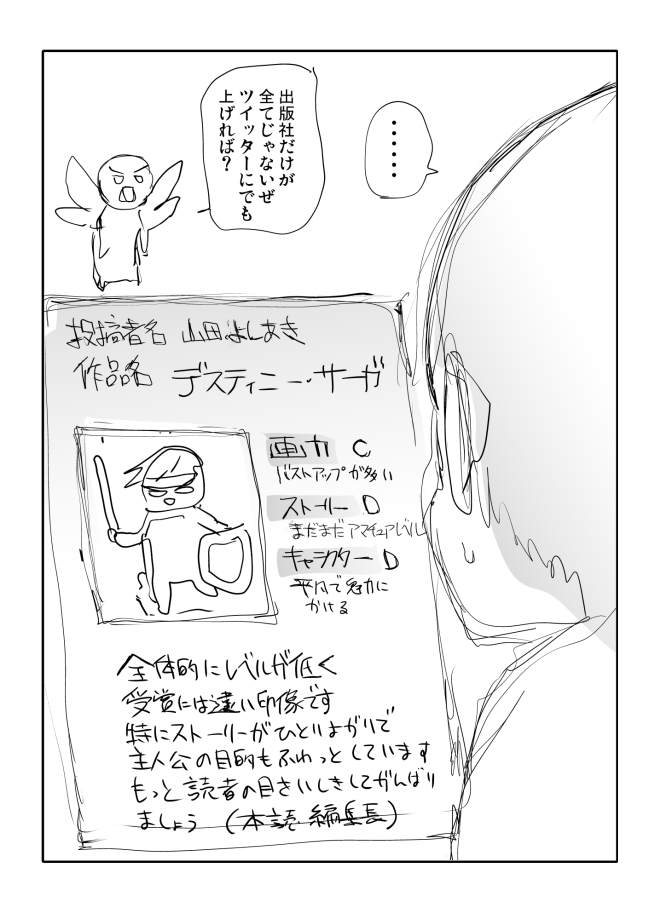 ・・・・・・
出版社だけが
全てじゃないぜ
ツイッターにでも
上げれば？
投稿者名 山田よしあき
作品名 デスティニー・サーガ
画力 C
バストアップが多い
ストーリー D
まだまだアマチュアレベル
キャラクター D
平凡で魅力に
かける
全体的にレベルが低く
受賞には遠い印像です
特にストーリーがひとりよがりで
主人公の目的もふわっとしています
もっと読者の目さいしきしてがんばり
ましょう (本誌・編集長)